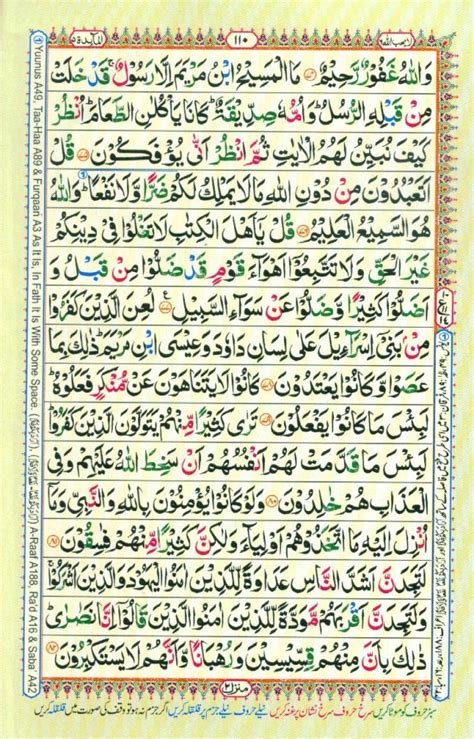 لا يحب الله ٦
١١٠
المآئدة ٥
وَاللّٰهُ غَفُوْرٌ رَّحِيْمٌ ۝٧٤ مَا الْمَسِيْحُ ابْنُ مَرْيَمَ اِلَّا رَسُوْلٌ ۚ قَدْ خَلَتْ
مِنْ قَبْلِهِ الرُّسُلُ ؕ وَاُمُّهٗ صِدِّيْقَةٌ ؕ كَانَا يَاْكُلٰنِ الطَّعَامَ ؕ اُنْظُرْ
كَيْفَ نُبَيِّنُ لَهُمُ الْاٰيٰتِ ثُمَّ انْظُرْ اَنّٰى يُؤْفَكُوْنَ ۝٧٥ قُلْ
اَتَعْبُدُوْنَ مِنْ دُوْنِ اللّٰهِ مَا لَا يَمْلِكُ لَكُمْ ضَرًّا وَّلَا نَفْعًا ؕ وَاللّٰهُ
هُوَ السَّمِيْعُ الْعَلِيْمُ ۝٧٦ قُلْ يٰۤاَهْلَ الْكِتٰبِ لَا تَغْلُوْا فِيْ دِيْنِكُمْ
غَيْرَ الْحَقِّ وَلَا تَتَّبِعُوْۤا اَهْوَآءَ قَوْمٍ قَدْ ضَلُّوْا مِنْ قَبْلُ وَ
اَضَلُّوْا كَثِيْرًا وَّضَلُّوْا عَنْ سَوَآءِ السَّبِيْلِ ۝٧٧ لُعِنَ الَّذِيْنَ كَفَرُوْا
مِنْۢ بَنِيْۤ اِسْرَآءِيْلَ عَلٰى لِسَانِ دَاوٗدَ وَعِيْسَى ابْنِ مَرْيَمَ ؕ ذٰلِكَ بِمَا
عَصَوْا وَّكَانُوْا يَعْتَدُوْنَ ۝٧٨ كَانُوْا لَا يَتَنَاهَوْنَ عَنْ مُّنْكَرٍ فَعَلُوْهُ ؕ
لَبِئْسَ مَا كَانُوْا يَفْعَلُوْنَ ۝٧٩ تَرٰى كَثِيْرًا مِّنْهُمْ يَتَوَلَّوْنَ الَّذِيْنَ كَفَرُوْا ؕ
لَبِئْسَ مَا قَدَّمَتْ لَهُمْ اَنْفُسُهُمْ اَنْ سَخِطَ اللّٰهُ عَلَيْهِمْ وَفِي
الْعَذَابِ هُمْ خٰلِدُوْنَ ۝٨٠ وَلَوْ كَانُوْا يُؤْمِنُوْنَ بِاللّٰهِ وَالنَّبِيِّ وَمَاۤ
اُنْزِلَ اِلَيْهِ مَا اتَّخَذُوْهُمْ اَوْلِيَآءَ وَلٰكِنَّ كَثِيْرًا مِّنْهُمْ فٰسِقُوْنَ ۝٨١
لَتَجِدَنَّ اَشَدَّ النَّاسِ عَدَاوَةً لِّلَّذِيْنَ اٰمَنُوا الْيَهُوْدَ وَالَّذِيْنَ اَشْرَكُوْا ۚ
وَلَتَجِدَنَّ اَقْرَبَهُمْ مَّوَدَّةً لِّلَّذِيْنَ اٰمَنُوا الَّذِيْنَ قَالُوْۤا اِنَّا نَصٰرٰى ؕ
ذٰلِكَ بِاَنَّ مِنْهُمْ قِسِّيْسِيْنَ وَرُهْبَانًا وَّاَنَّهُمْ لَا يَسْتَكْبِرُوْنَ ۝٨٢
منزل ٢
سبز حروف کو موٹا کریں سرخ حروف سرخ نشان پر غنہ کریں نیلے حروف نیلے جزم پر قلقلہ کریں اگر جزم نہ ہو تو وقف کی صورت میں قلقلہ کریں
Yuunus A49, Taa-Haa A89 & Furqaan A3 As It Is, In Fath It Is With Some Space.
A-Raaf A188, Ra'd A16 & Saba' A42